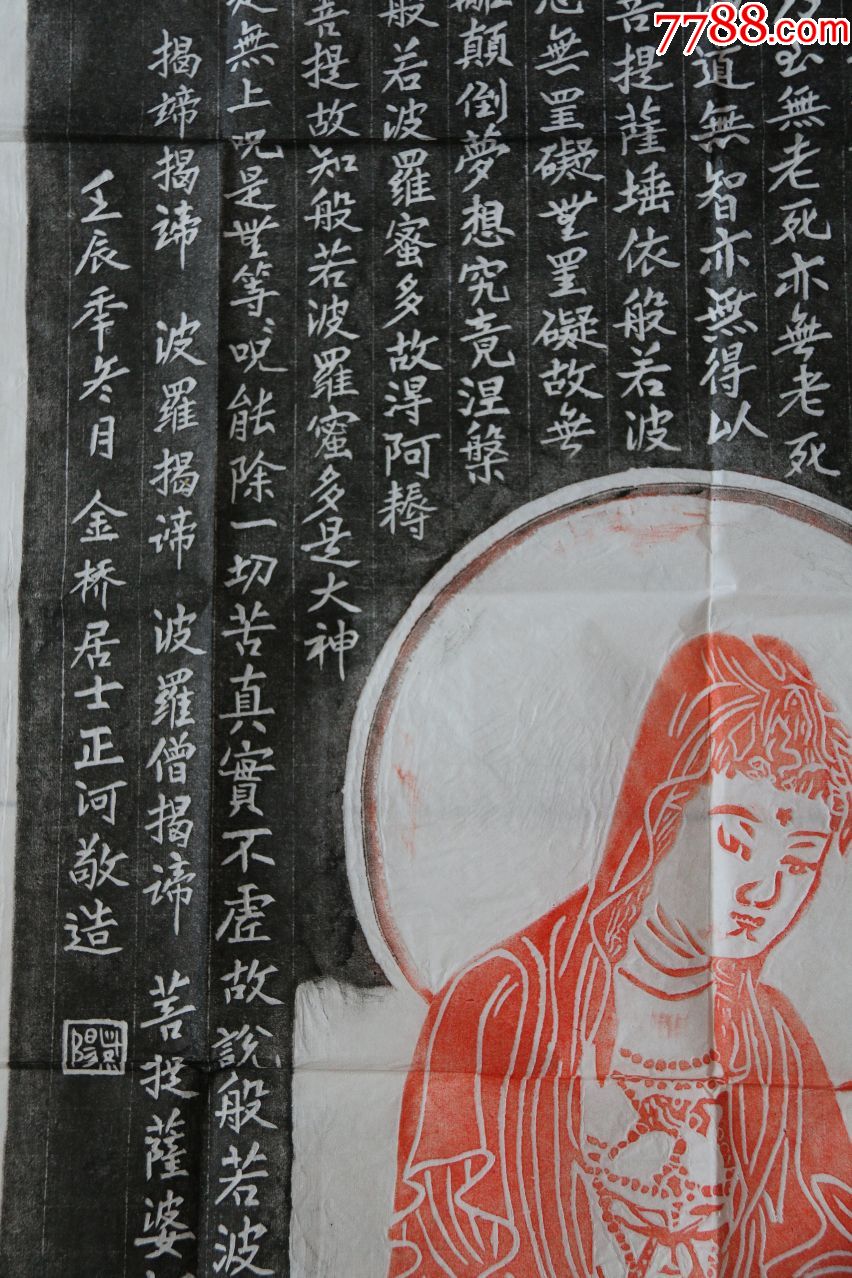 7788.com
乃至無老死亦無老死
道無智亦無得以
菩提薩埵依般若波
無罣礙無罣礙故無
離顛倒夢想究竟涅槃
般若波羅蜜多故得阿耨
菩提故知般若波羅蜜多是大神
是無上呪是無等〻呪能除一切苦真實不虛故說般若波
揭諦揭諦 波羅揭諦 波羅僧揭諦 菩提薩婆
壬辰年冬月 金桥居士正河敬造